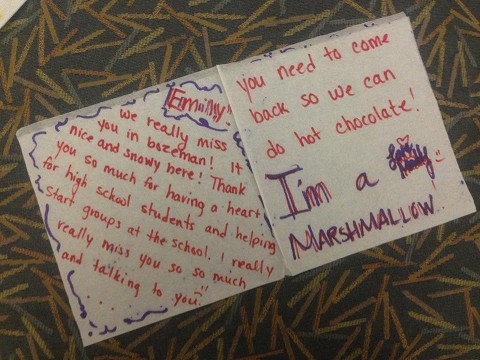 Emily!
We really miss
you in bozeman! It
nice and snowy here! Thank
you so much for having a heart
for high school students and helping
start groups at the school. I really
really miss you so so much
and talking to you!
you need to come
back so we can
do hot chocolate!
I'm a
MARSHMALLOW